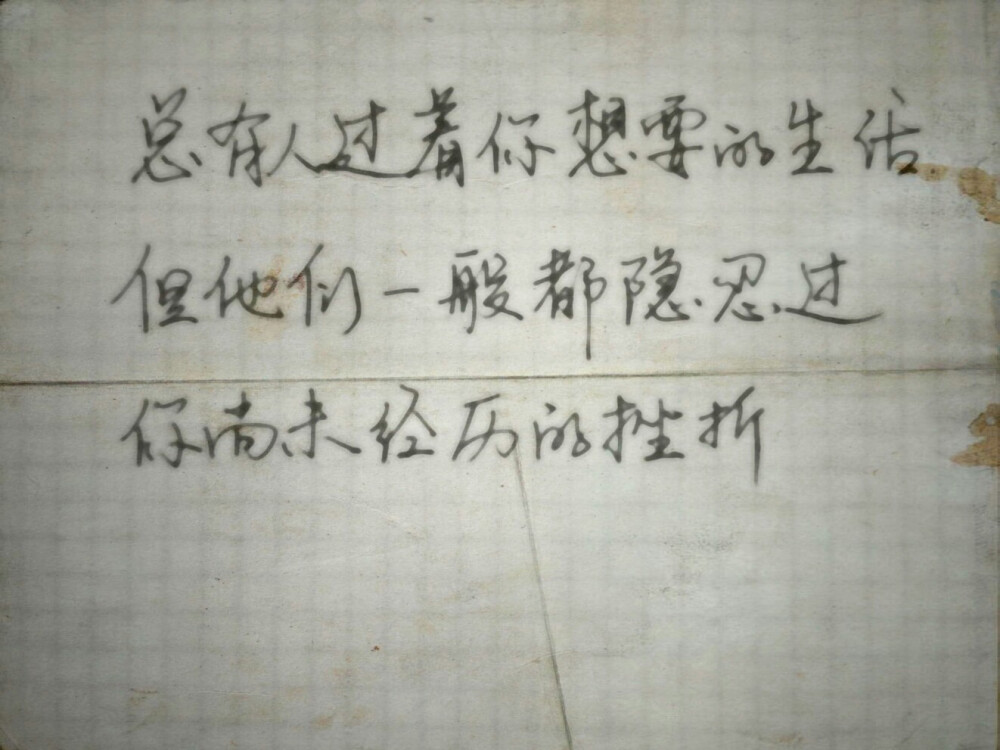 总有人过着你想要的生活
但他们一般都隐忍过
你尚未经历的挫折